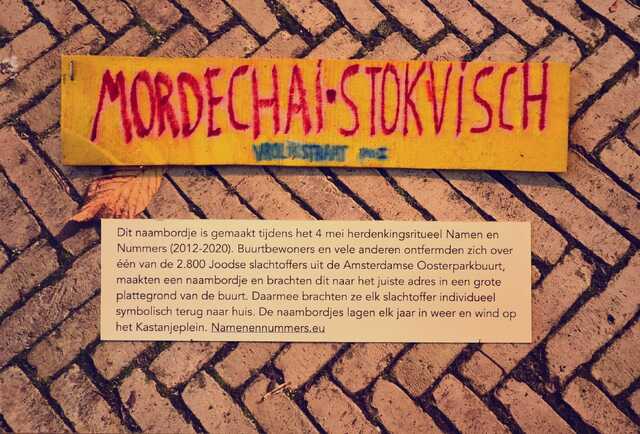 MORDECHAI·STOKVISCH
Dit naambordje is gemaakt tijdens het 4 mei herdenkingsritueel Namen en
Nummers (2012-2020). Buurtbewoners en vele anderen ontfermden zich over
één van de 2.800 Joodse slachtoffers uit de Amsterdamse Oosterparkbuurt,
maakten een naambordje en brachten dit naar het juiste adres in een grote
plattegrond van de buurt. Daarmee brachten ze elk slachtoffer individueel
symbolisch terug naar huis. De naambordjes lagen elk jaar in weer en wind op
het Kastanjeplein. Namenennummers.eu